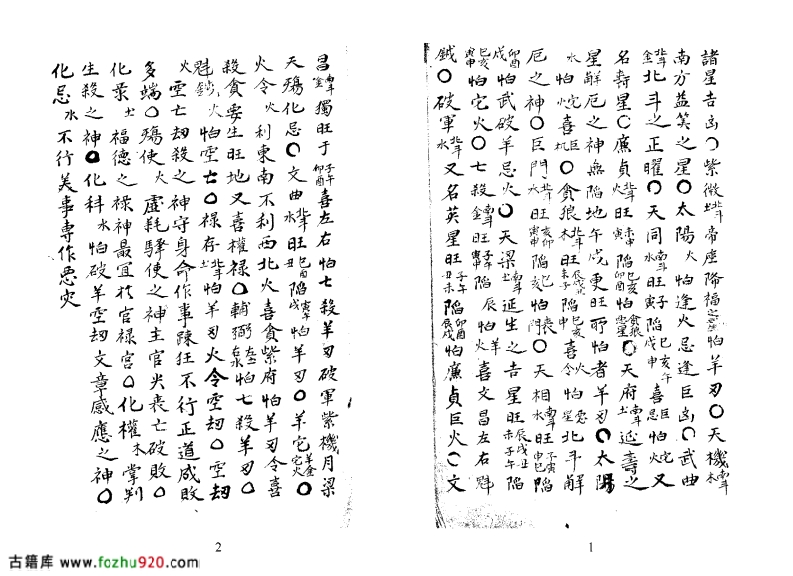 諸星吉凶〇紫微土北斗帝座降福之怕羊刃〇天機木南斗
南方益筭之星〇太陽火怕逢火忌逢巨凶〇武曲
金北斗北斗之正曜〇天同水南斗旺子陷巳亥午申喜巨怕火又
名壽星〇廉貞火北斗旺寅未申陷巳亥卯酉怕〇天府土南斗延壽之
星解厄之神無陷地午戌更旺所怕者羊刃〇太陽
水怕喜〇貪狼木北斗旺陷喜火怕北斗解
厄之神〇巨門水北斗旺陷忌怕〇天相水南斗旺陷
怕武破羊忌火〇天梁土南斗延生之吉星旺陷
怕它火〇七殺金南斗旺陷辰怕羊火喜文昌左右魁
鉞〇破軍水北斗又名英星旺子午丑未陷卯酉辰戌怕廉貞巨火〇文
1
昌金南斗獨旺于子午卯酉喜左右怕七殺羊刃破軍紫機月梁
天殤化忌〇文曲水北斗旺巳酉丑陷寅午戌怕羊刃〇羊它羊金它火
火令火利東南不利西北火喜貪紫府怕羊刃令喜
殺貪要生旺地又喜權祿〇輔弼左土右水怕七殺羊刃〇
魁鉞火怕空亡〇祿存土北斗怕羊刃火令空劫〇空劫
火空亡劫殺之神守身命作事踈狂不行正道成敗
多端〇殤使火虛耗驛使之神主官災喪亡破敗〇
化祿土福德之祿神最宜於官祿宮〇化權木掌判
生殺之神〇化科水怕破羊空劫文章感應之神〇
化忌水不行美事專作惡災
2
古籍库 www.fozhu920.com